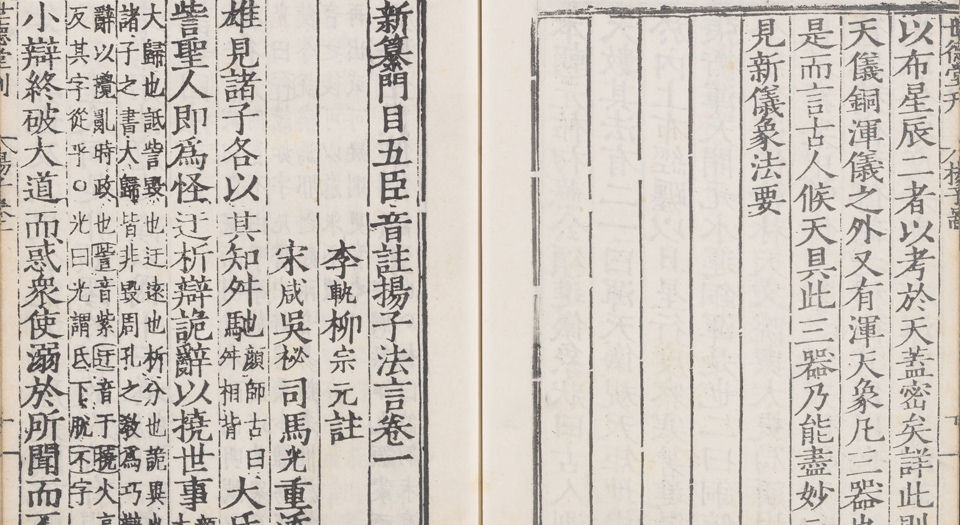 以布星辰二者以考於天蓋密矣詳此則
天儀銅渾儀之外又有渾天象凡三器也
是而言古人候天具此三器乃能盡妙
見新儀象法要
新纂門目五臣音註揚子法言卷一
李軌柳宗元註
宋咸吳祕司馬光重添
雄見諸子各以其知舛馳
顏師古曰
舛相背
大氐
訾聖人即為怪迂析辯詭辭以撓世事
大歸也詆訾毀也迂遠也析分也詭異也
諸子之書大歸皆非毀周孔之教為巧辯
辭以攪亂時政也訾音紫迂音于撓火高
反其字從手○光曰光謂氐下脫不字
小辯終破大道而惑眾使溺於所聞而不